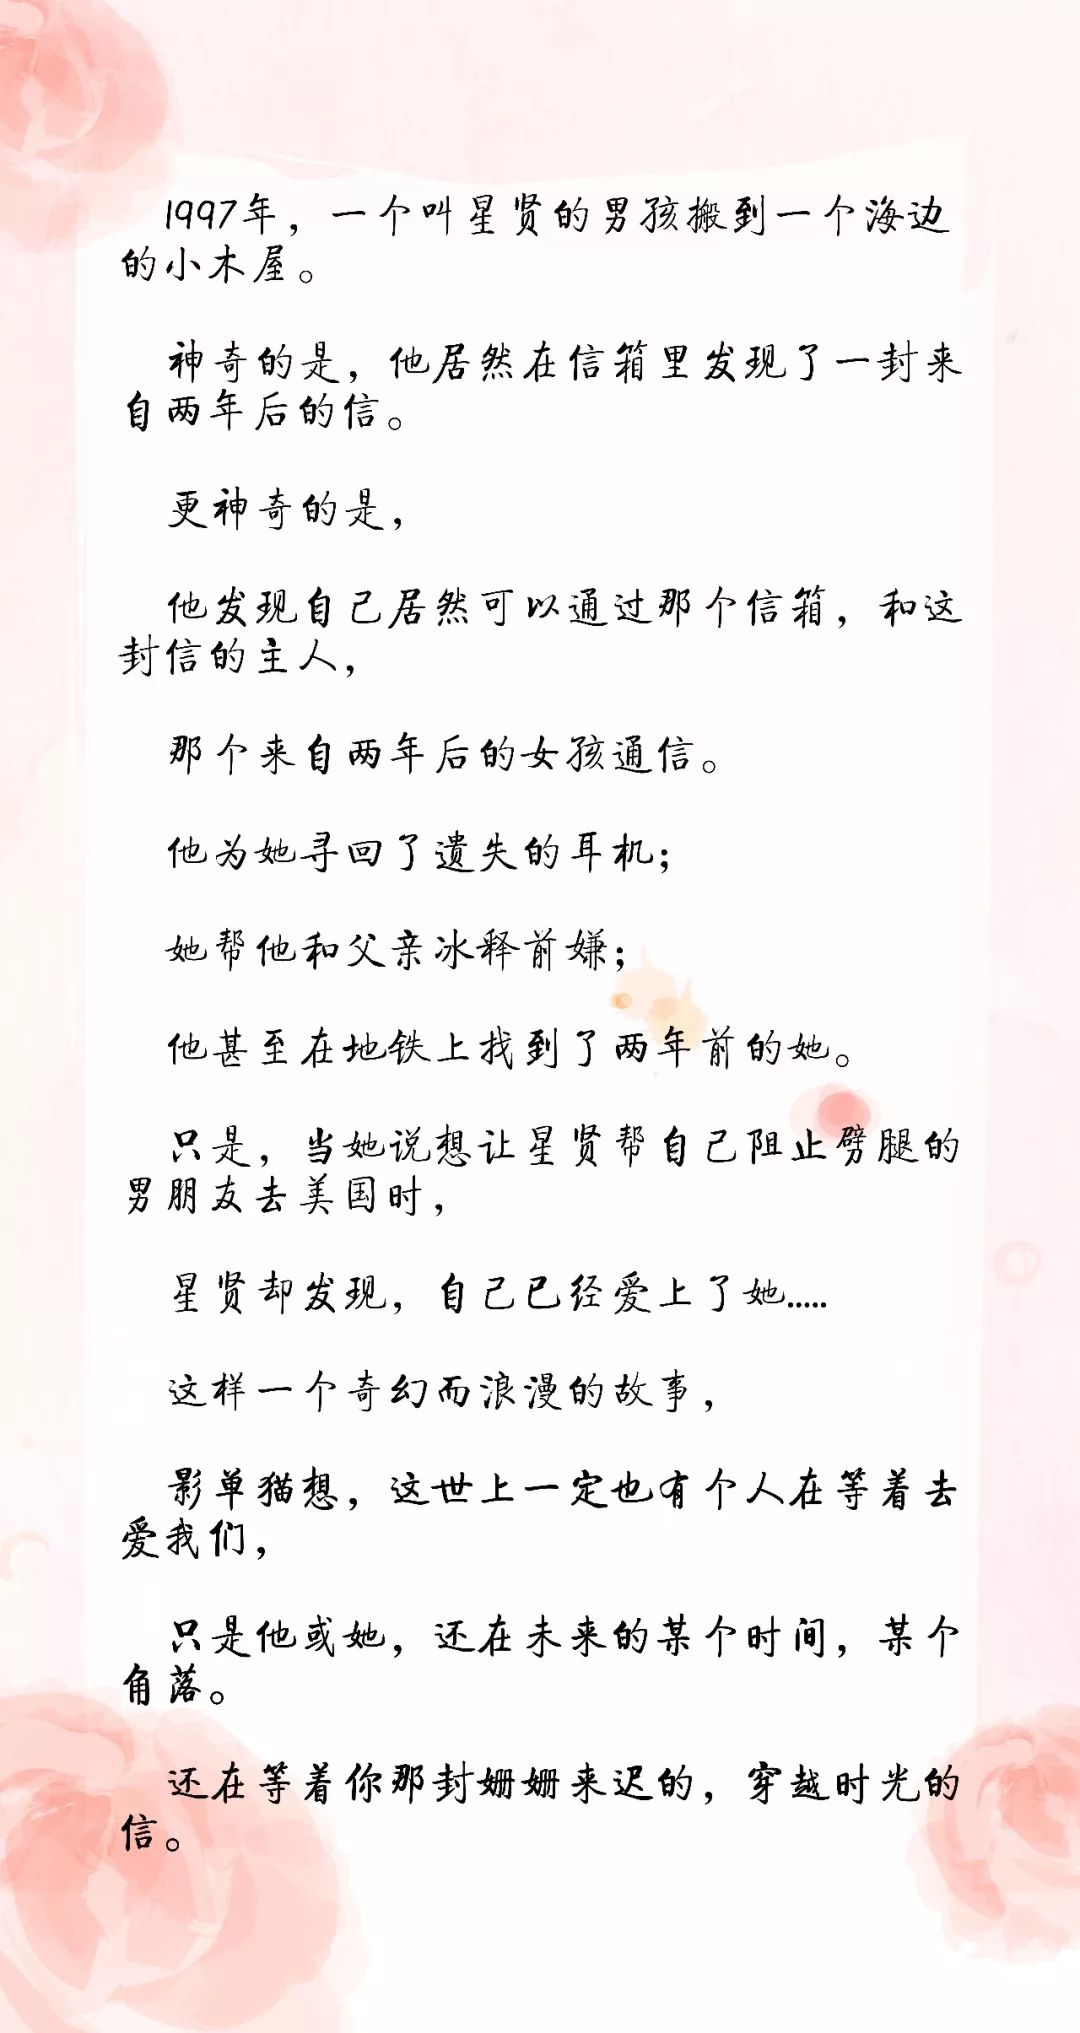 1997年，一个叫星贤的男孩搬到一个海边
的小木屋。
神奇的是，他居然在信箱里发现了一封来
自两年后的信。
更神奇的是，
他发现自己居然可以通过那个信箱，和这
封信的主人，
那个来自两年后的女孩通信。
他为她寻回了遗失的耳机；
她帮他和父亲冰释前嫌；
他甚至在地铁上找到了两年前的她。
只是，当她说想让星贤帮自己阻止劈腿的
男朋友去美国时，
星贤却发现，自己已经爱上了她.....
这样一个奇幻而浪漫的故事，
影单猫想，这世上一定也有个人在等着去
爱我们，
只是他或她，还在未来的某个时间，某个
角落。
还在等着你那封姗姗来迟的，穿越时光的
信。